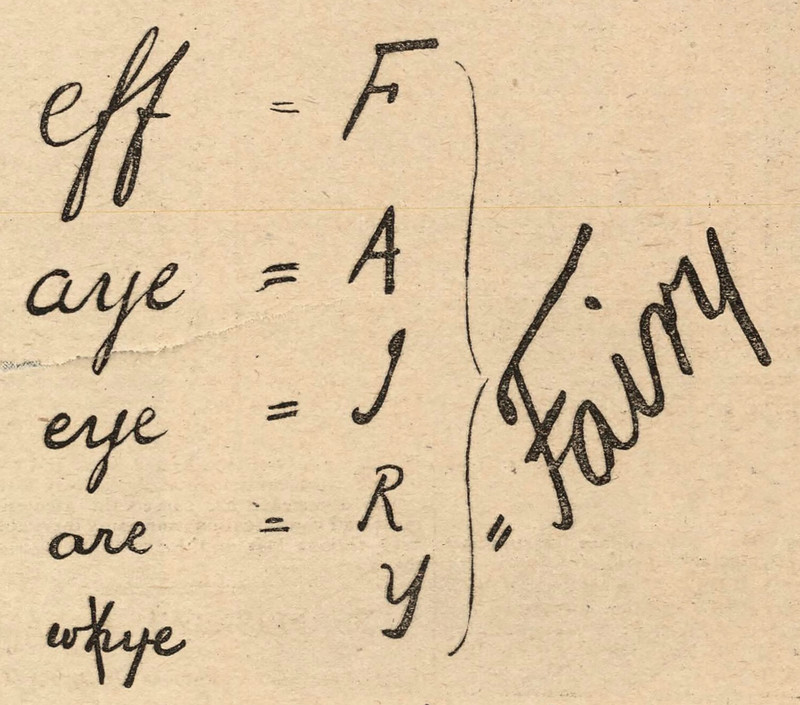 eff = F
aye = A
eye = I
are = R
whye Y
= Fairy